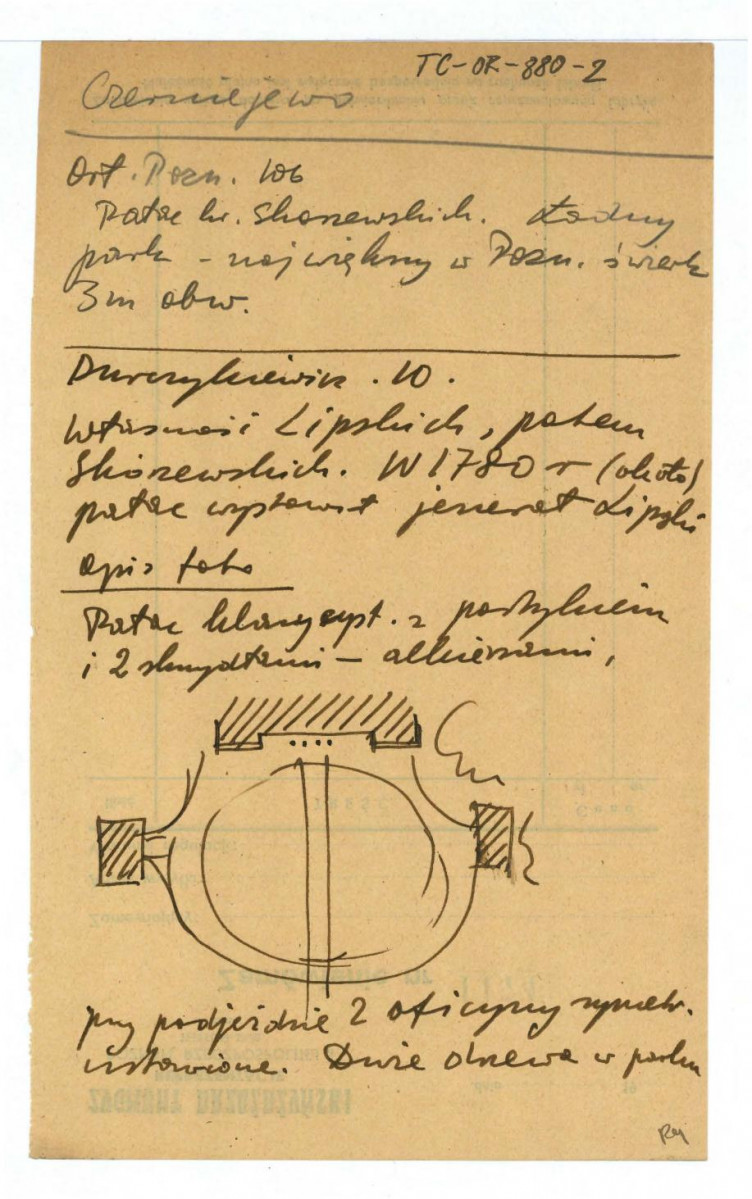 TC-OR-880-2
Czerniejewo
Ort. Pozn. 106
Pałac hr. Skórzewskich. Ładny
park - największy w Pozn. świerk
3m obw.
Durczykiewicz. 10.
Własność Lipskich, potem
Skórzewskich. W 1780 r (około)
pałac wystawił jenerał Lipski
opis foto
Pałac klasycyst. z portykiem
i 2 skrzydłami - alkierzami,
przy podjeździe 2 oficyny symetr.
ustawione. Duże drzewa w parku